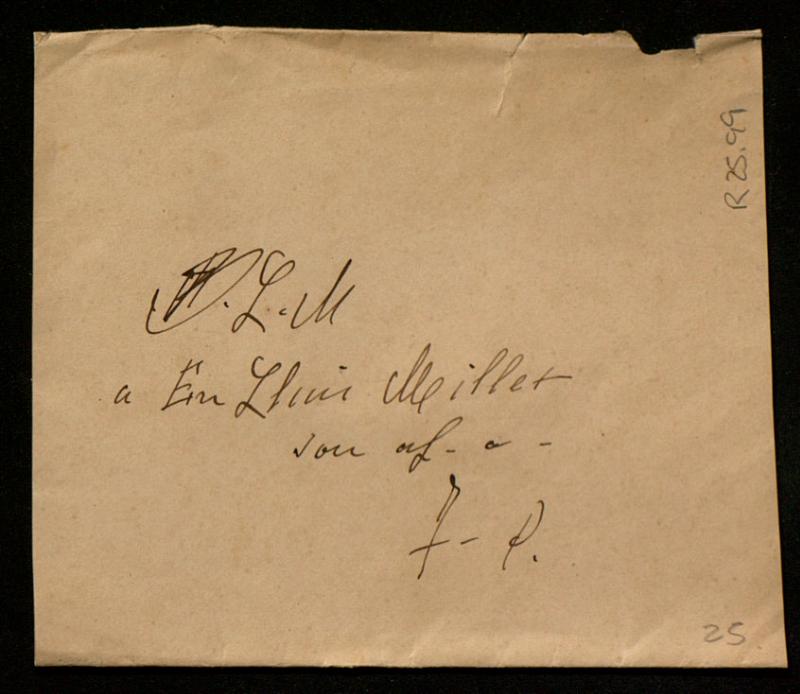 R 25.99
B. L. M
a En Lluis Millet
son af. a -
F - P.
25